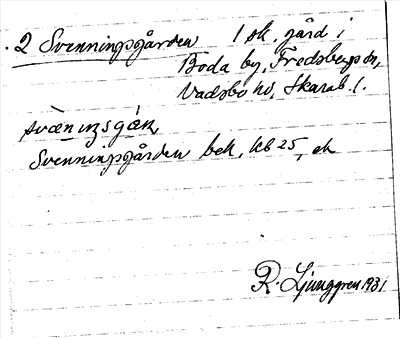 2 Svenningsgården 1 sk. gård i
Boda by, Fredsbergs sn,
Vadsbo hd, Skarab. l.
svæ̀nıŋsgán
Svenningsgården bek, kb 25, ek
R. Ljunggren 1931